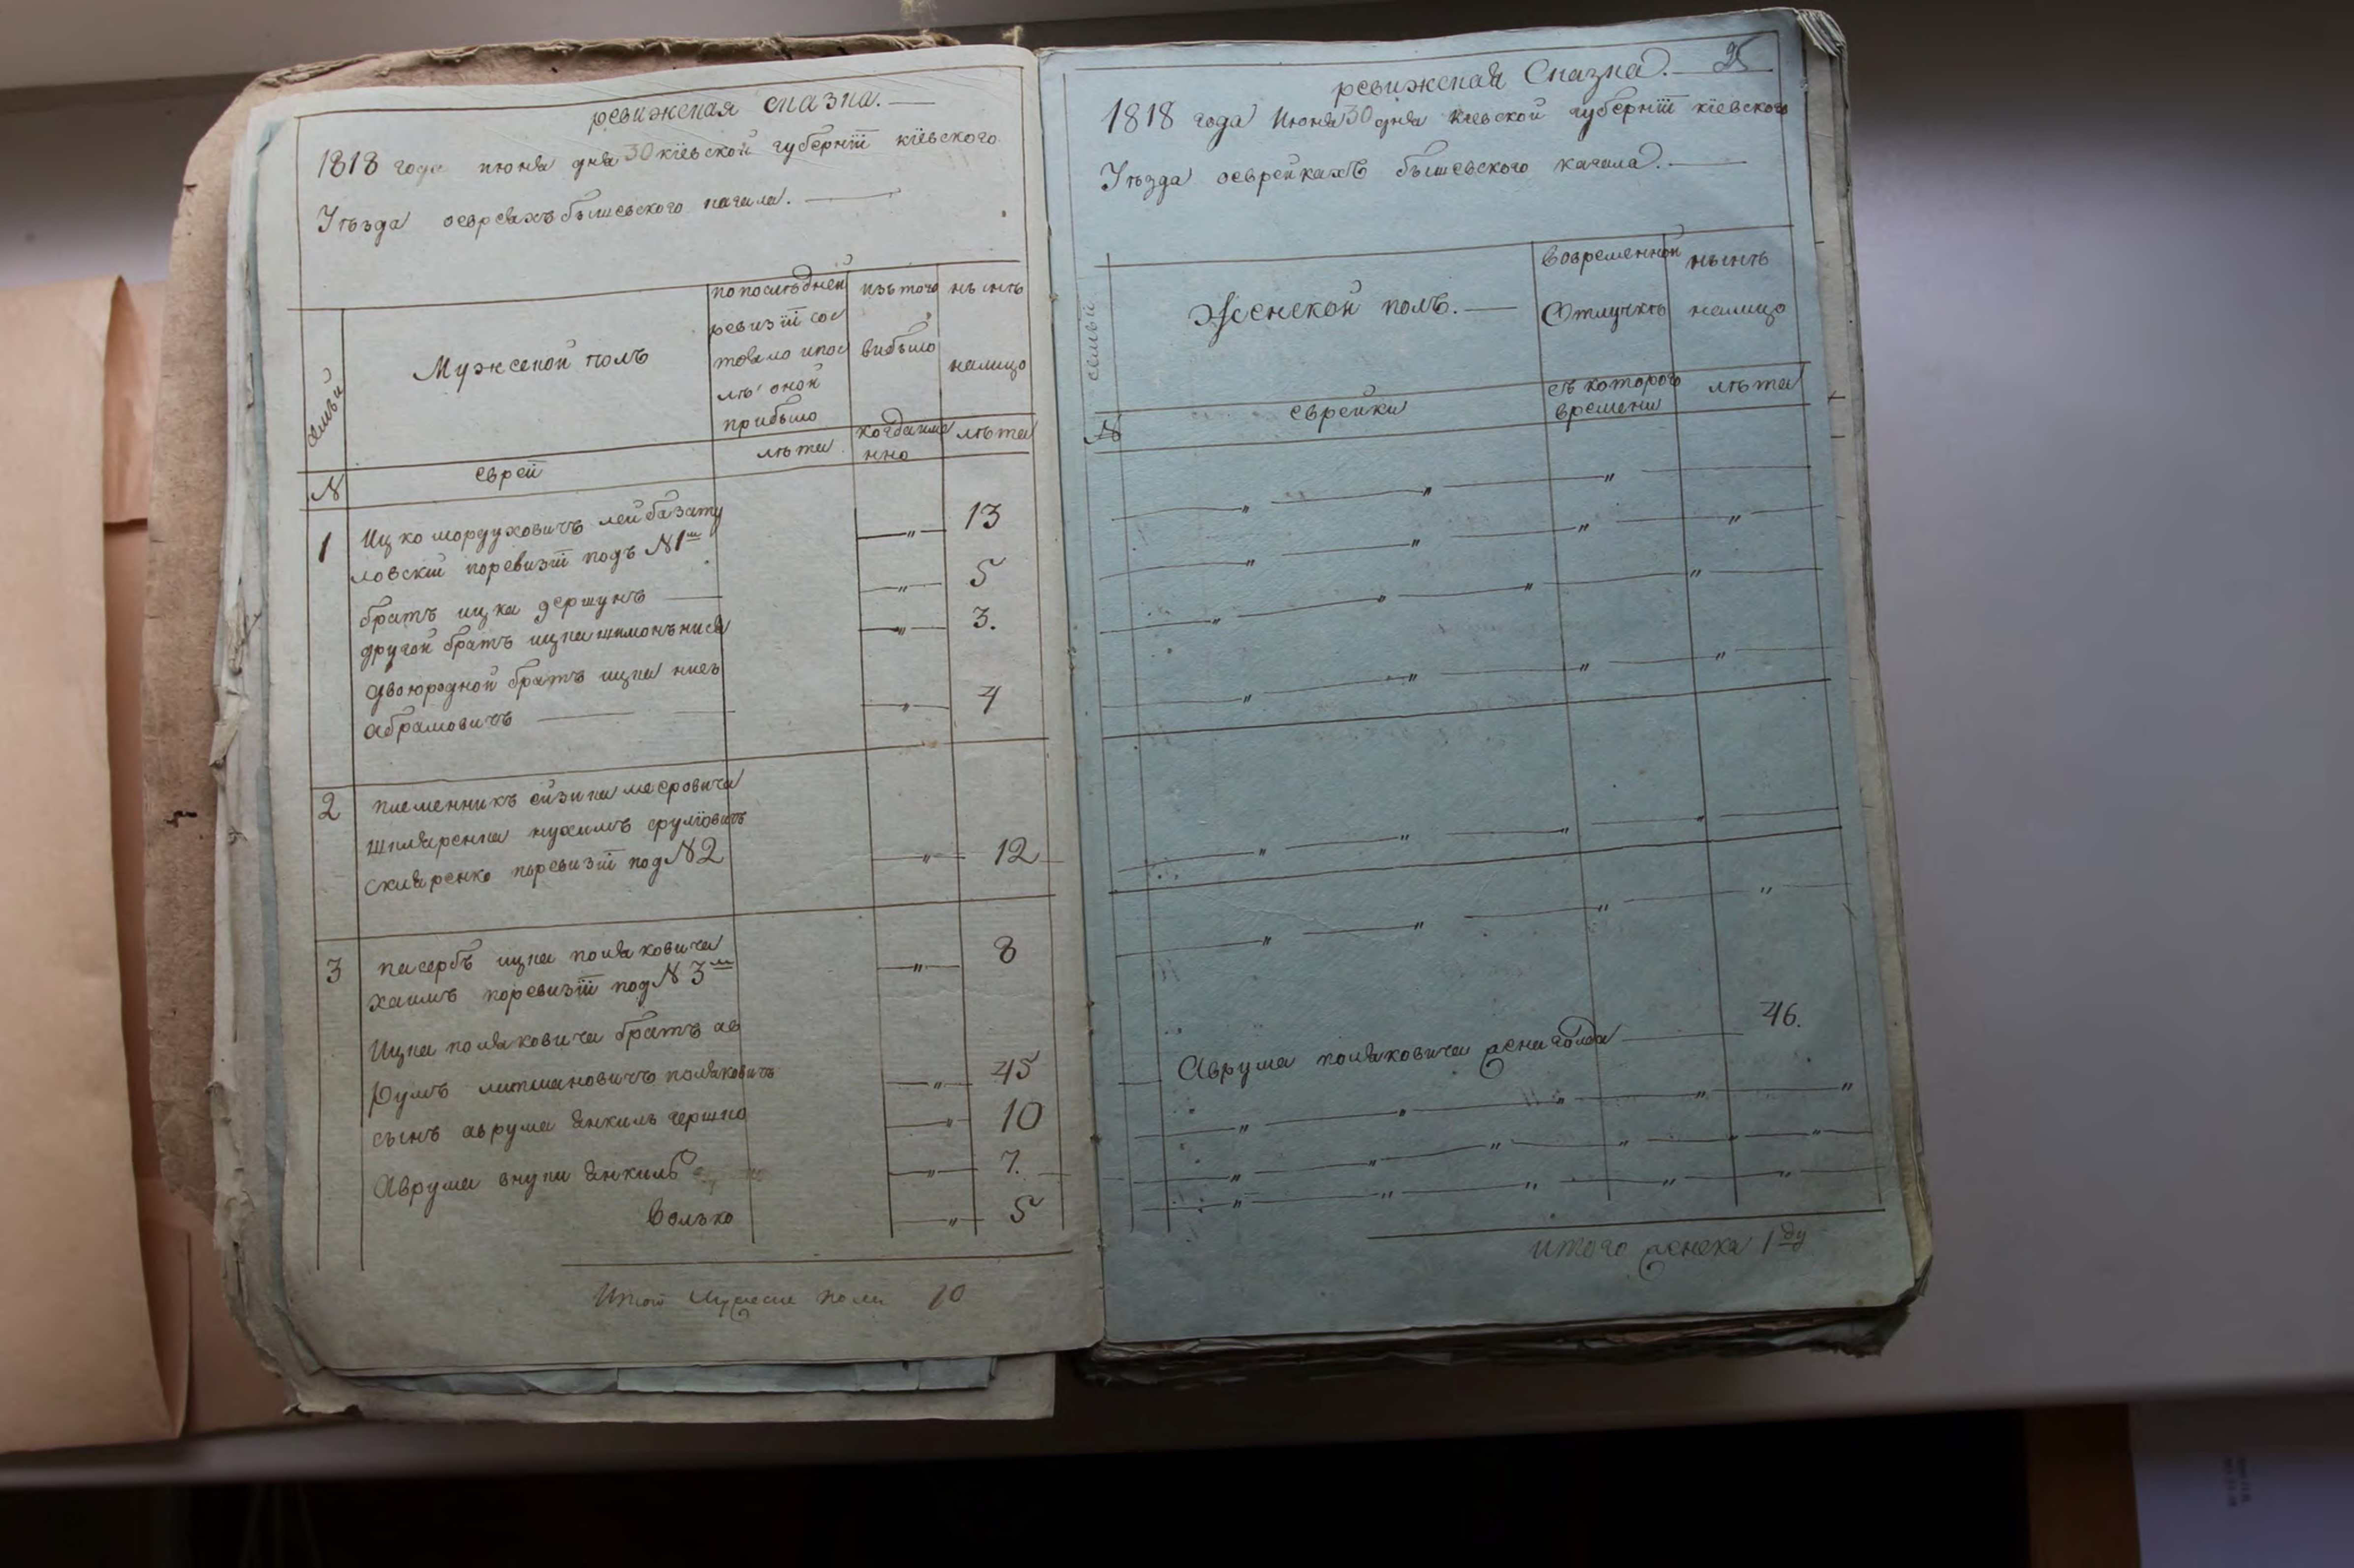 ревижская сказка.
1818 года июня дня 30 кїевской губернїи кїевского
Уѣзда оевреяхъ бышевского кагала.
семьи
Мужской полъ
попослѣдней
ревизїи сос
тояло ипос
лѣ оной
прибыло
изъ того
выбыло
нынѣ
налицо
№
еврей
лѣта
когдаиме
нно
лѣта
1 Ицко мордуховичъ лейбазату
ловскїй поревизїи подъ №1м 13
братъ ицка гершунъ 5
другой братъ ицка шимонъ 3.
двоюродной братъ ицка
абрамовичъ 4
2 племенникъ ейзика меєровича
шкляренка нухимъ сруліовичъ
скляренко поревизїи под №2 12
3 пасербъ ицка поляковича 8
хаимъ поревизїи под №3м
Ицка поляковича братъ ав
румъ липмановичъ поляковичъ 45
сынъ аврума янкиль гершко 10
Аврума внуки янкиль 7.
Волько 5
Итого мужеска пола 10
ревижская Сказка. 25
1818 года Июня 30 дня кіевской губернїи кїевского
Уѣзда оеврейкахъ бышевского кагала.
семьи
Женской полъ.
вовременной
Отлучкѣ
нынѣ
налицо
№
еврейки
съ которого
времени
лѣта
Аврума поляковича жена голда 46.
итого женска 1ду